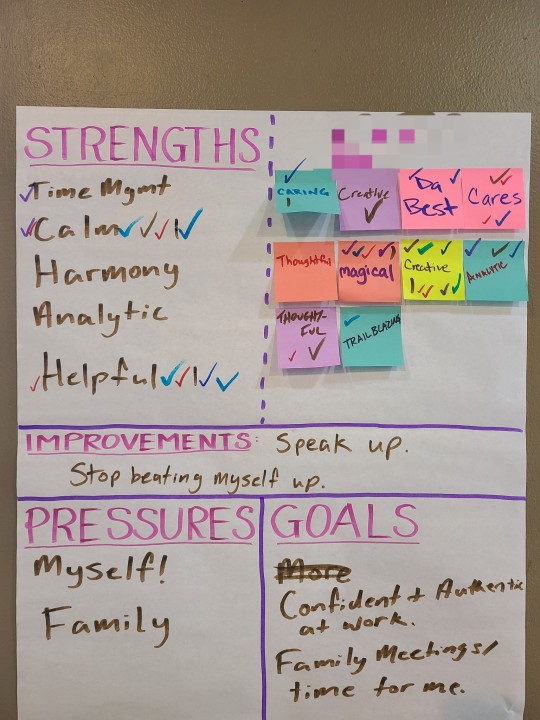 STRENGTHS
Time Mgmt
Calm
Harmony
Analytic
Helpful
CARING
Creative
Da
Best
Cares
Thoughtful
magical
Creative
ANALYTIC
THOUGHT-
FUL
TRAILBLAZING
IMPROVEMENTS: Speak up.
Stop beating myself up.
PRESSURES
Myself!
Family
GOALS
More
Confident + Authentic
at work.
Family Meetings/
time for me.